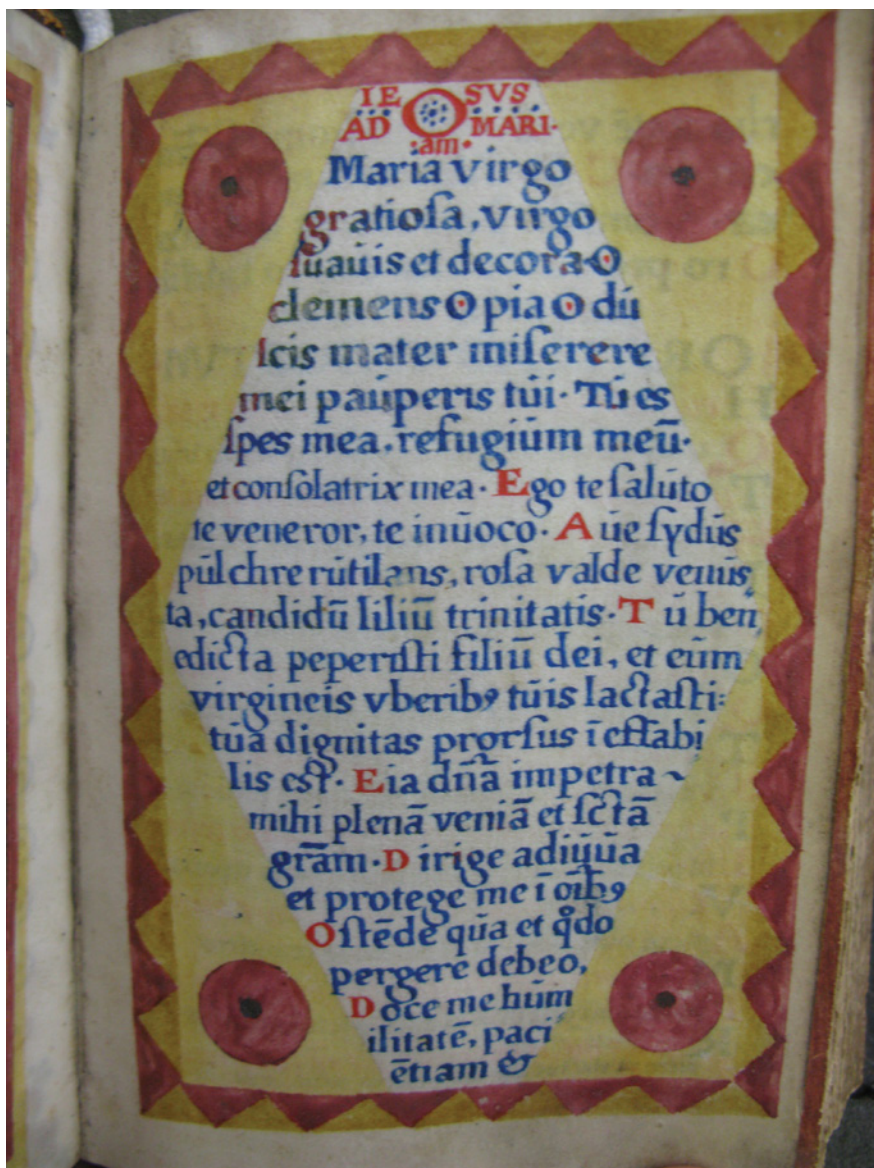 IE O SVS
AD MARI·
:am·
Maria virgo
gratioſa, virgo
ſuaúis et decora O
clemens O pia O dú
lcis mater miſerere
mei paúperis túi· Tú es
ſpes mea. refugiúm meū·
et conſolatrix mea· Ego te ſalúto
te veneror, te inúoco· Aúe ſydús
púlchre rútilans, roſa valde venús
ta, candidū liliū trinitatis· Tú ben
edicta peperiſti filiū dei, et eúm
virgineis vberibꝯ túis lactaſti:
túa dignitas prorſus īeffabi
lis eſt· Eia dn̄a impetra ~
mihi plenā veniā et ſctā
grām· Dirige adiúúa
et protege me ī oībꝯ
Oſtēde qúa et qn̊do
pergere debeo,
Doce me húm
ilitatē, paci
ētiam &